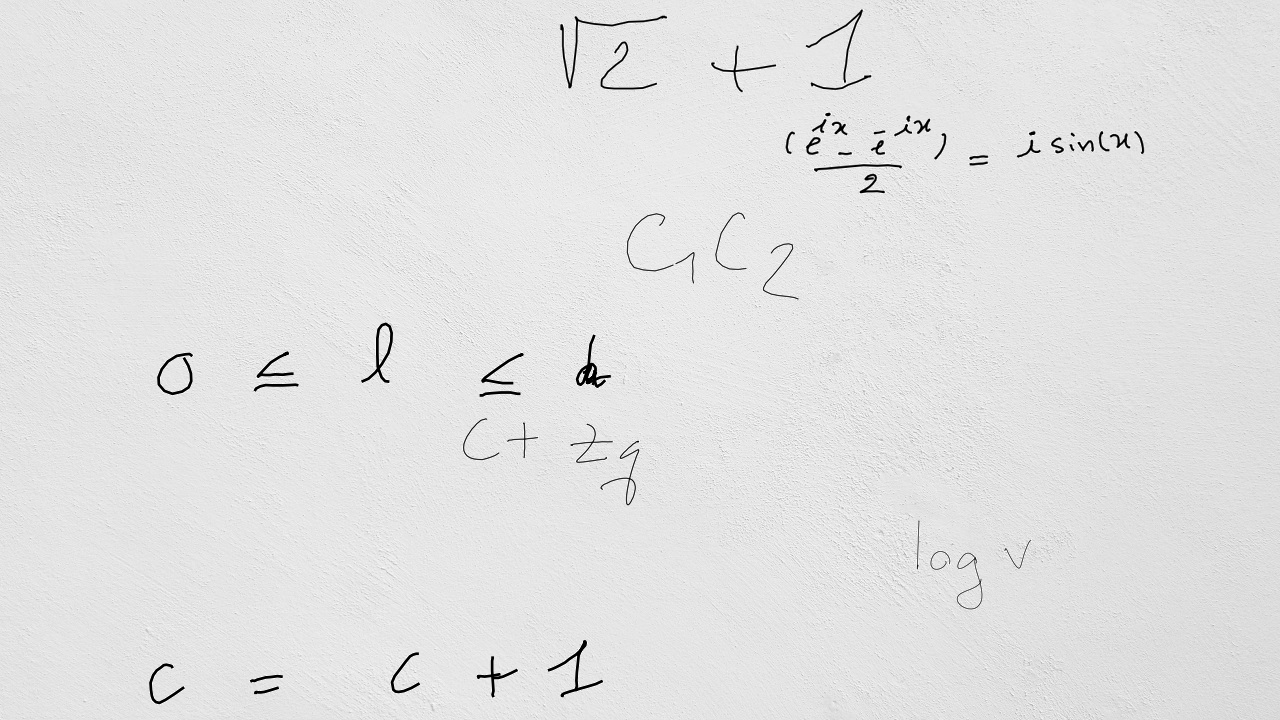 √2 + 1
(e^{ix} - e^{-ix})/2 = i sin(x)
C₁C₂
0 ≤ l ≤
C + zq
log v
c = c + 1